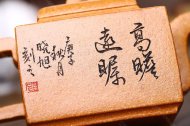 高瞻
遠矚
庚子
秋月
晓旭
刻之